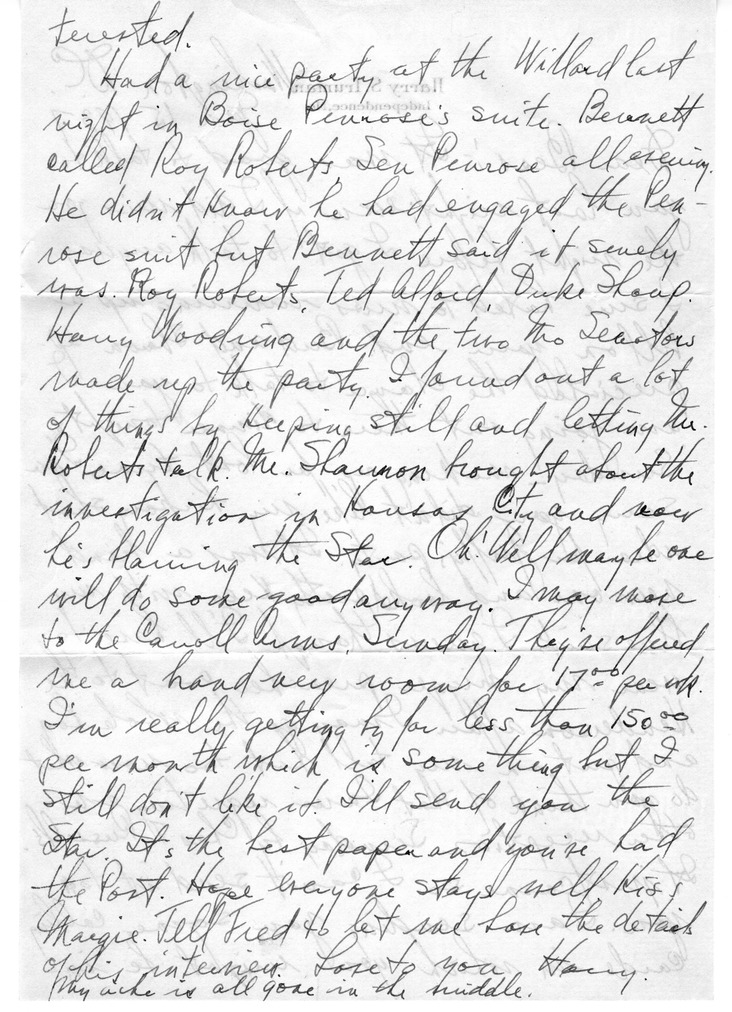 terested.
Had a nice party at the Willard last
night in Boise Penrose's suite. Bennett
called Roy Roberts, Sen Penrose all evening.
He didn't know he had engaged the Pen-
rose suit but Bennett said it surely
was. Roy Roberts, Ted Alford, Duke Shoop.
Harry Woodring and the two Mo Senators
made up the party. I found out a lot
of things by keeping still and letting Mr.
Roberts talk. Mr. Shannon brought about the
investigation in Kansas City and now
he's blaming the Star. Oh! Well maybe one
will do some good anyway. I may move
to the Carroll Arms, Sunday. They've offered
me a hand very room for 17.00 per wk.
I'm really getting by for less than 150.00
per month which is something but I
still don't like it. I'll send you the
Star. It's the best paper and you've had
the Post. Hope everyone stays well Kiss
Margie. Tell Fred to let me have the details
of his interview. Love to you Harry.
My ache is all gone in the middle.
Harry S. Truman
Independence,